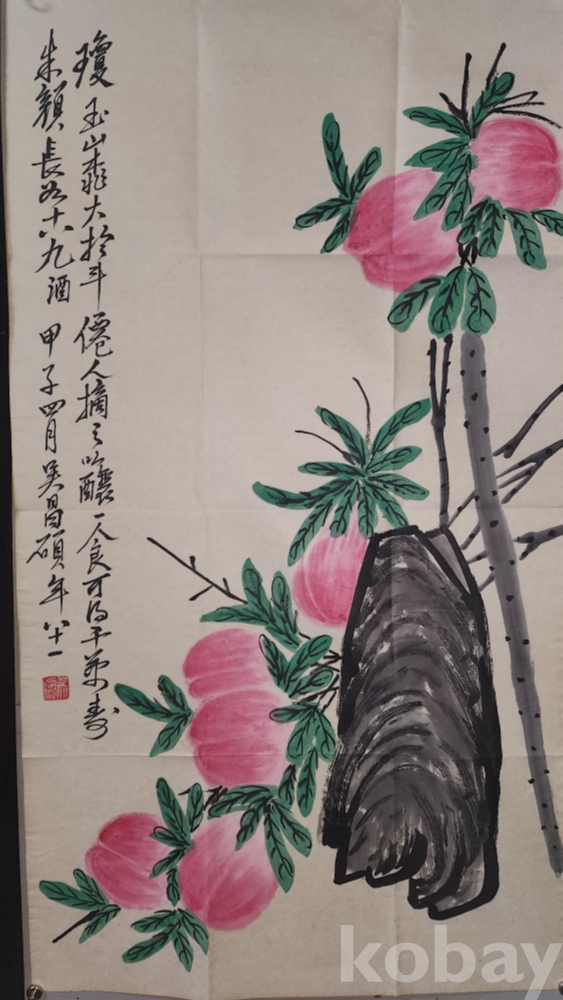 瓊玉山桃大於斗僊人摘之以釀一食可得千萬壽
朱顏長如十八九酒甲子四月吳昌碩年八十一
kobay